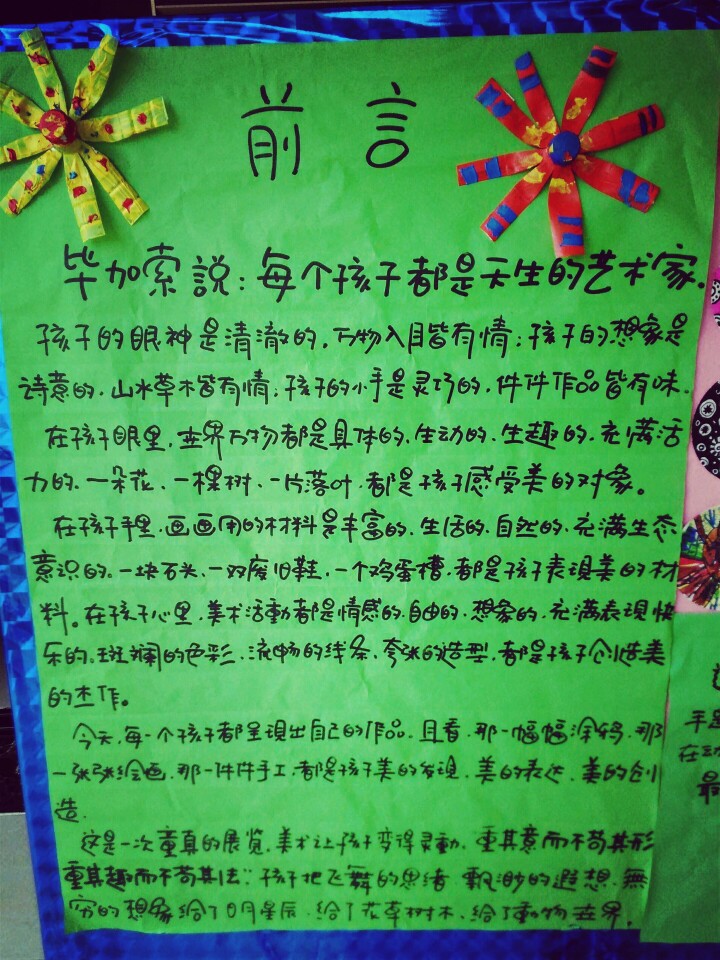 前言
毕加索説：每个孩子都是天生的艺术家.
孩子的眼神是清澈的，万物入目皆有情；孩子的想象是
诗意的，山水草木皆有情；孩子的小手是灵巧的，件件作品皆有味.
在孩子眼里，世界万物都是具体的、生动的、生趣的、充满活
力的、一朵花、一棵树、一片落叶，都是孩子感受美的对象。
在孩子手里，画画用的材料是丰富的、生活的、自然的、充满生态
意识的。一块石米、一双废旧鞋、一个鸡蛋槽，都是孩子表现美的材
料。在孩子心里，美术活動都是情感的、自由的、想象的、充满表现快
乐的。斑斓的色彩、流畅的线条、夸张的造型，都是孩子创造美
的杰作。
今天，每一个孩子都呈現出自己的作品，且看，那一幅幅涂鸦，那
一张张绘画，那一件件手工，都是孩子美的发现，美的表达，美的创
造.
这是一次童真的展览，美术让孩子变得灵動，重其意而不苟其形
重其趣而不苟其法：孩子把飞舞的思绪，飘渺的遐想，無
穷的想象给了日月星辰，给了花草树木，给了動物世界.
手是
在动
最